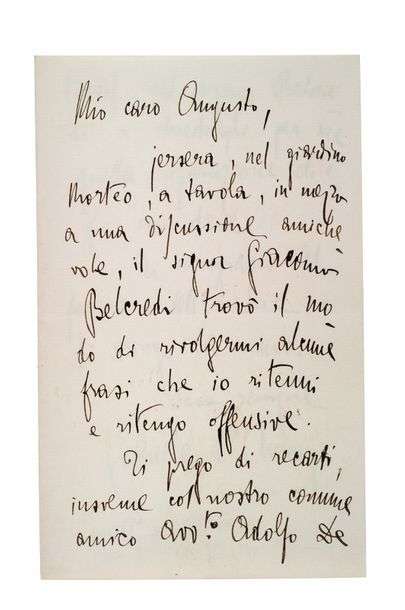 Mio caro Augusto,
jersera, nel giardino
Morteo, a tavola, in mezzo
a una discussione amiche
vole, il signor Giacomo
Belcredi trovò il mo
do di rivolgermi alcune
frasi che io ritenni
e ritengo offensive.
Ti prego di recarti,
insieme col nostro comune
amico Avv.to Adolfo De